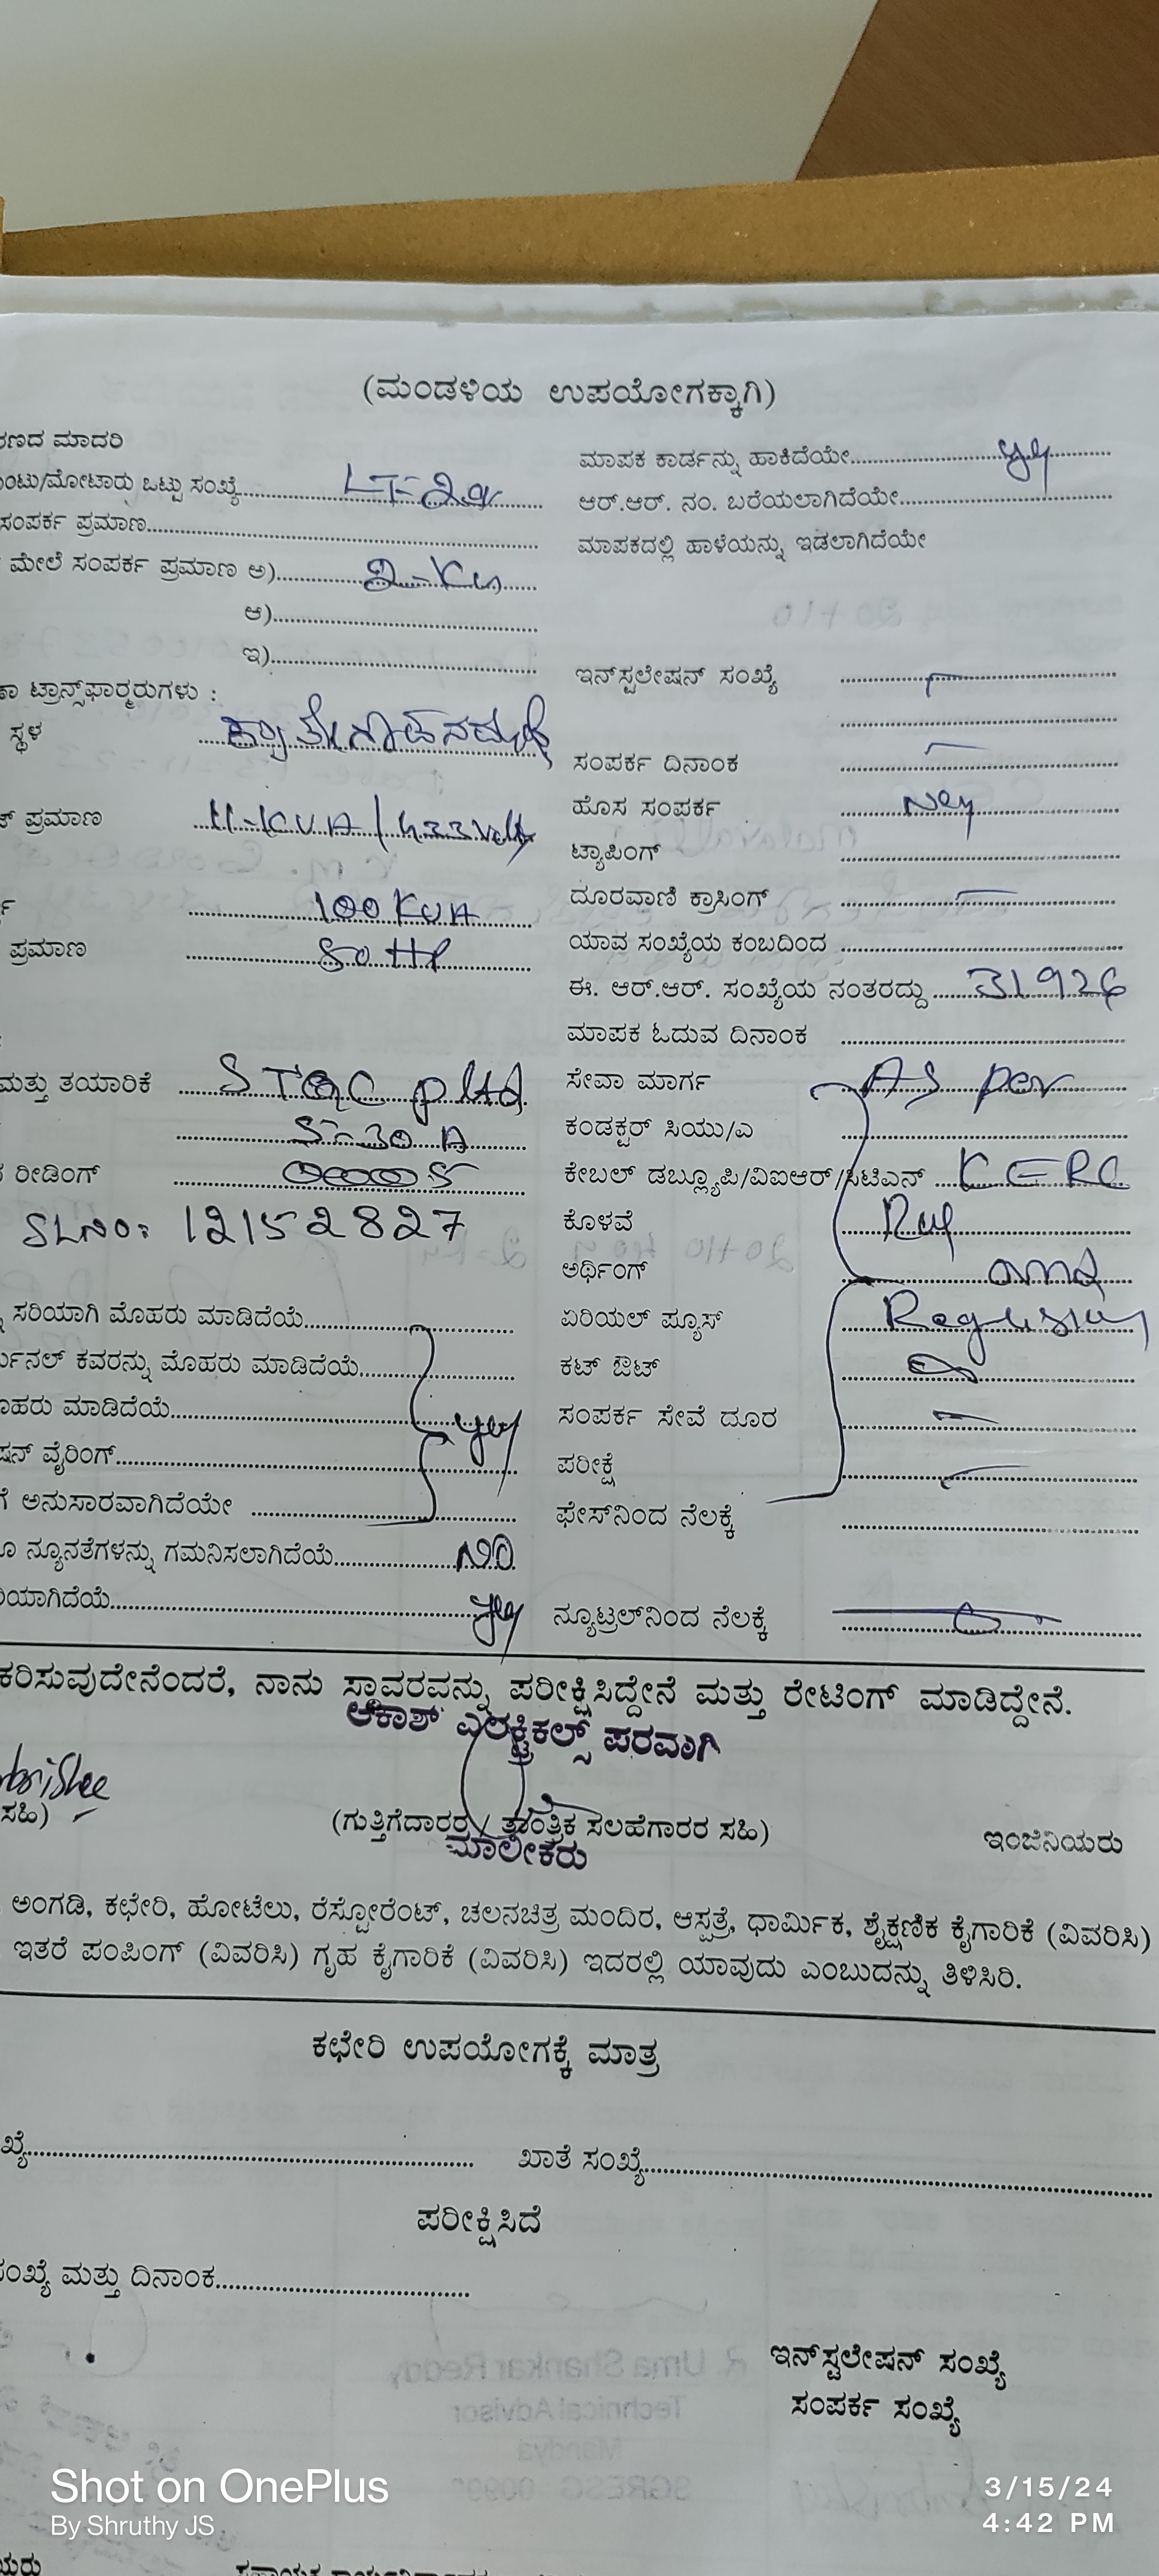 (ಮಂಡಳಿಯ ಉಪಯೋಗಕ್ಕಾಗಿ)
ರಣದ ಮಾದರಿ
ಮಾಪಕ ಕಾರ್ಡನ್ನು ಹಾಕಿದೆಯೇ.......... yes
ಂಟು/ಮೋಟಾರು ಒಟ್ಟು ಸಂಖ್ಯೆ.......... LT-2a
ಆರ್.ಆರ್. ನಂ. ಬರೆಯಲಾಗಿದೆಯೇ..........
ಸಂಪರ್ಕ ಪ್ರಮಾಣ..........
ಮಾಪಕದಲ್ಲಿ ಹಾಳೆಯನ್ನು ಇಡಲಾಗಿದೆಯೇ
ಮೇಲೆ ಸಂಪರ್ಕ ಪ್ರಮಾಣ ಅ).......... 2-Kw
ಆ)..........
ಇ)..........
ಇನ್‌ಸ್ಟಲೇಷನ್ ಸಂಖ್ಯೆ ..........
ಟ್ರಾನ್ಸ್‌ಫಾರ್ಮರುಗಳು :
ಸ್ಥಳ ..........
ಸಂಪರ್ಕ ದಿನಾಂಕ ..........
ಹೊಸ ಸಂಪರ್ಕ .......... New
ಪ್ರಮಾಣ .......... 11-KVA/433Volt
ಟ್ಯಾಪಿಂಗ್ ..........
.......... 100 KVA
ದೂರವಾಣಿ ಕ್ರಾಸಿಂಗ್ ..........
ಪ್ರಮಾಣ .......... 80 HP
ಯಾವ ಸಂಖ್ಯೆಯ ಕಂಬದಿಂದ ..........
ಈ. ಆರ್.ಆರ್. ಸಂಖ್ಯೆಯ ನಂತರದ್ದು .......... 31926
ಮಾಪಕ ಓದುವ ದಿನಾಂಕ ..........
ಮತ್ತು ತಯಾರಿಕೆ .......... STQC P ltd
ಸೇವಾ ಮಾರ್ಗ .......... As per
.......... 5-30 A
ಕಂಡಕ್ಟರ್ ಸಿಯು/ಎ ..........
ರೀಡಿಂಗ್ .......... 00005
ಕೇಬಲ್ ಡಬ್ಲ್ಯೂಪಿ/ವಿಐಆರ್/ಸಿಟಿಎನ್ .......... KERC
SLNO: 12152827
ಕೊಳವೆ ..........
ಅರ್ಥಿಂಗ್ .......... and
ಸರಿಯಾಗಿ ಮೊಹರು ಮಾಡಿದೆಯೆ..........
ಏರಿಯಲ್ ಪ್ಯೂಸ್ ..........
ರ್ಮಿನಲ್ ಕವರನ್ನು ಮೊಹರು ಮಾಡಿದೆಯೆ..........
ಕಟ್ ಔಟ್ ..........
ೊಹರು ಮಾಡಿದೆಯೆ.......... yes
ಸಂಪರ್ಕ ಸೇವೆ ದೂರ ..........
ಷನ್ ವೈರಿಂಗ್..........
ಪರೀಕ್ಷೆ ..........
ಗೆ ಅನುಸಾರವಾಗಿದೆಯೇ ..........
ಫೇಸ್‌ನಿಂದ ನೆಲಕ್ಕೆ ..........
ನ್ಯೂನತೆಗಳನ್ನು ಗಮನಿಸಲಾಗಿದೆಯೆ.......... NO
ರಿಯಾಗಿದೆಯೆ.......... yes
ನ್ಯೂಟ್ರಲ್‌ನಿಂದ ನೆಲಕ್ಕೆ ..........
ಕರಿಸುವುದೇನೆಂದರೆ, ನಾನು ಸ್ಥಾವರವನ್ನು ಪರೀಕ್ಷಿಸಿದ್ದೇನೆ ಮತ್ತು ರೇಟಿಂಗ್ ಮಾಡಿದ್ದೇನೆ.
ಆಕಾಶ್ ಎಲೆಕ್ಟ್ರಿಕಲ್ಸ್ ಪರವಾಗಿ
ಸಹಿ)
(ಗುತ್ತಿಗೆದಾರರ / ತಾಂತ್ರಿಕ ಸಲಹೆಗಾರರ ಸಹಿ)
ಇಂಜಿನಿಯರು
ಮಾಲೀಕರು
ಅಂಗಡಿ, ಕಛೇರಿ, ಹೋಟೆಲು, ರೆಸ್ಟೋರೆಂಟ್, ಚಲನಚಿತ್ರ ಮಂದಿರ, ಆಸ್ಪತ್ರೆ, ಧಾರ್ಮಿಕ, ಶೈಕ್ಷಣಿಕ ಕೈಗಾರಿಕೆ (ವಿವರಿಸಿ)
ಇತರೆ ಪಂಪಿಂಗ್ (ವಿವರಿಸಿ) ಗೃಹ ಕೈಗಾರಿಕೆ (ವಿವರಿಸಿ) ಇದರಲ್ಲಿ ಯಾವುದು ಎಂಬುದನ್ನು ತಿಳಿಸಿರಿ.
ಕಛೇರಿ ಉಪಯೋಗಕ್ಕೆ ಮಾತ್ರ
ಖ್ಯೆ.......... ಖಾತೆ ಸಂಖ್ಯೆ..........
ಪರೀಕ್ಷಿಸಿದೆ
ಸಂಖ್ಯೆ ಮತ್ತು ದಿನಾಂಕ..........
ಇನ್‌ಸ್ಟಲೇಷನ್ ಸಂಖ್ಯೆ
ಸಂಪರ್ಕ ಸಂಖ್ಯೆ
Shot on OnePlus
By Shruthy JS
3/15/24
4:42 PM